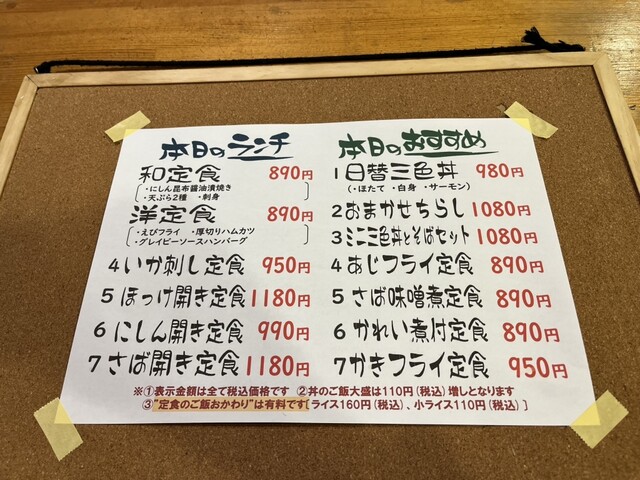 本日のランチ
和定食 890円
・にしん昆布醤油漬焼き
・天ぷら2種 ・刺身
洋定食 890円
・えびフライ ・厚切りハムカツ
・グレイビーソースハンバーグ
4 いか刺し定食 950円
5 ほっけ開き定食 1180円
6 にしん開き定食 990円
7 さば開き定食 1180円
本日のおすすめ
1 日替三色丼 980円
(・ほたて ・白身 ・サーモン)
2 おまかせちらし 1080円
3 ミニ三色丼とそばセット 1080円
4 あじフライ定食 890円
5 さば味噌煮定食 890円
6 かれい煮付定食 890円
7 かきフライ定食 950円
※①表示金額は全て税込価格です ②丼のご飯大盛は110円(税込)増しとなります
③"定食のご飯おかわり"は有料です[ライス160円(税込)、小ライス110円(税込)]